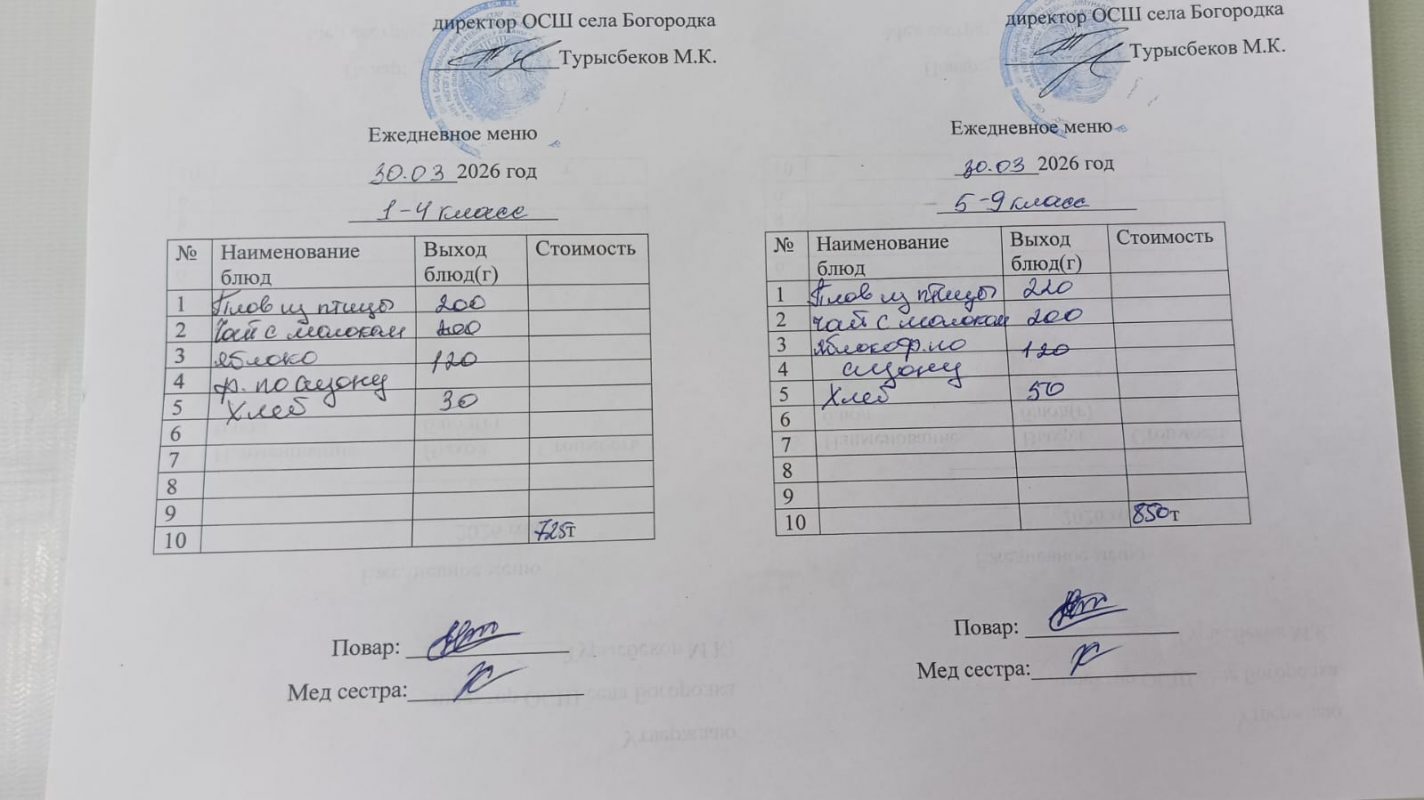 директор ОСШ села Богородка
Турысбеков М.К.
Ежедневное меню
30.03 2026 год
1-4 класс
№ Наименование блюд Выход блюд(г) Стоимость
1 Плов из птицы 200
2 Чай с молоком 200
3 яблоко 120
4 ф. по сезону
5 Хлеб 30
6
7
8
9
10 725т
Повар:
Мед сестра:
директор ОСШ села Богородка
Турысбеков М.К.
Ежедневное меню
30.03 2026 год
5-9 класс
№ Наименование блюд Выход блюд(г) Стоимость
1 Плов из птицы 220
2 чай с молоком 200
3 яблоко ф. по 120
4 сезону
5 Хлеб 50
6
7
8
9
10 850т
Повар:
Мед сестра: